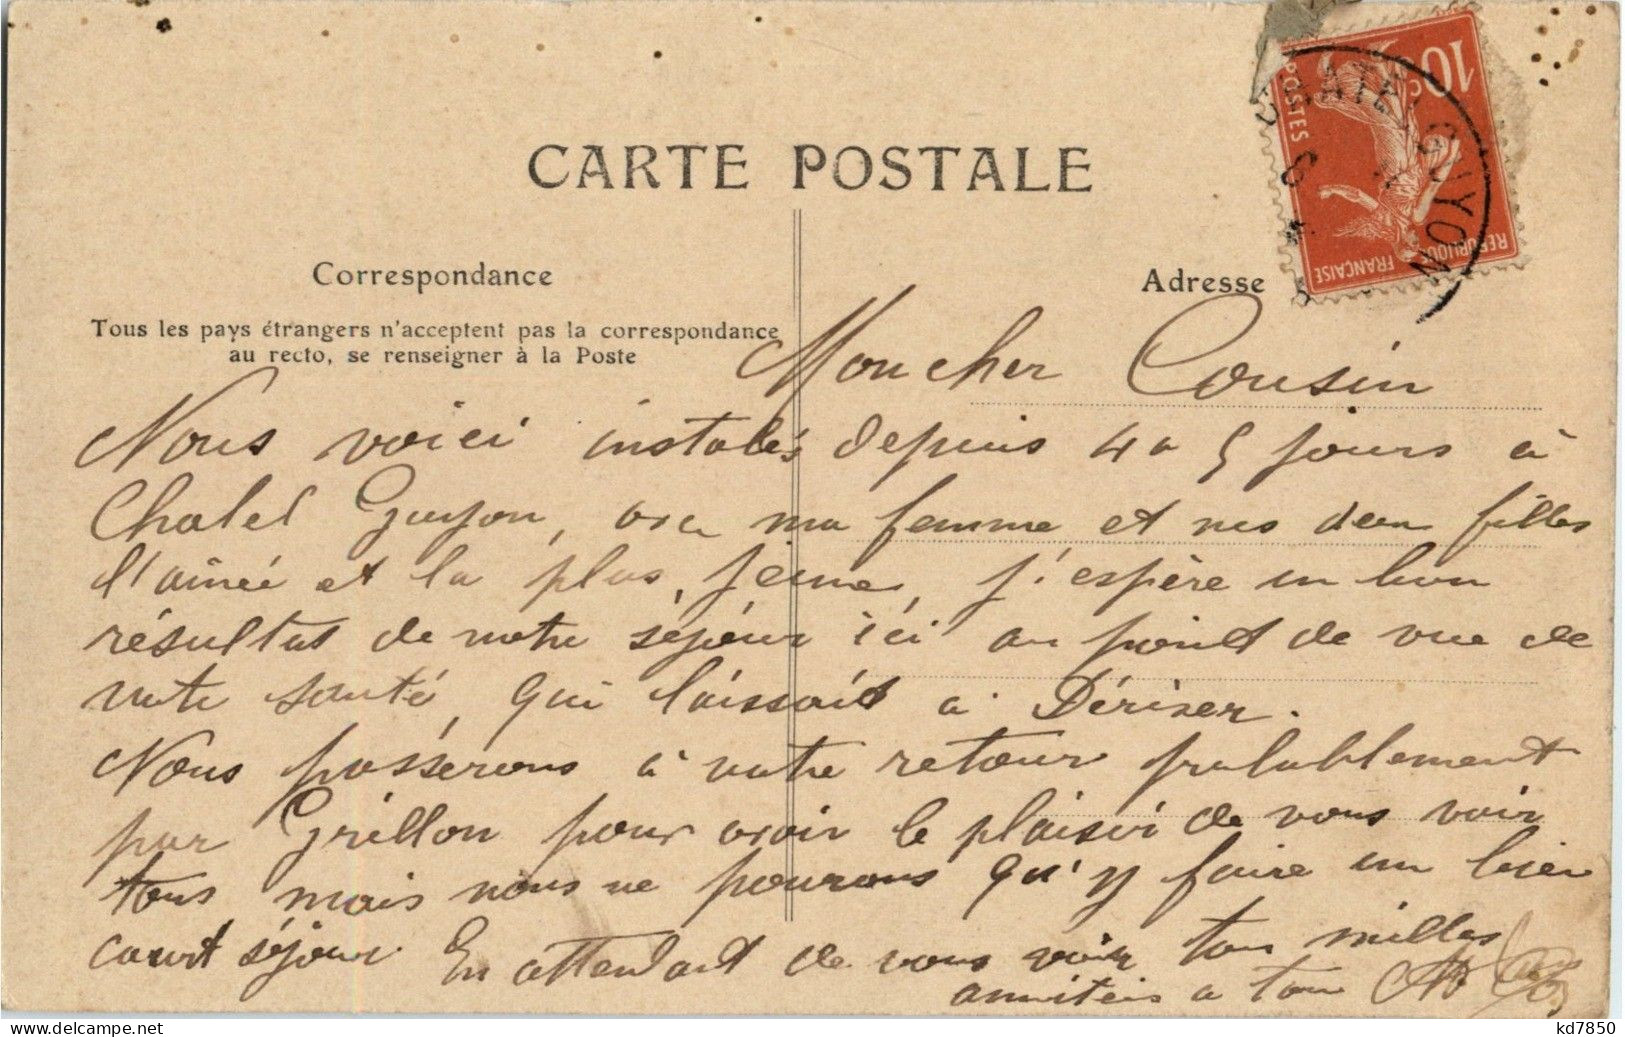 CARTE POSTALE
10c
POSTES
REPUBLIQUE FRANÇAISE
CHATEL GUYON
Correspondance
Adresse
Tous les pays étrangers n'acceptent pas la correspondance
au recto, se renseigner à la Poste
Mon cher Cousin
Nous voici instalés depuis 4 a 5 jours à
Chatel Guyon, avec ma femme et nos deux filles
l'ainée et la plus jeune, j'espère un bon
résultat de notre séjour ici au point de vue de
notre santé, qui laissait a Désirer.
Nous passerons à notre retour probablement
par Grillon pour avoir le plaisir de vous voir
tous mais nous ne pourons qu'y faire un bien
court séjour. En attendant de vous voir tous milles
amitiéis a tous
kd7850